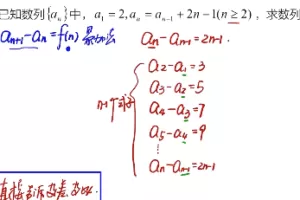 已知数列{aₙ}中，a₁ = 2, aₙ = aₙ₋₁ + 2n − 1(n ≥ 2)，求数列
aₙ₊₁ − aₙ = f(n) 累加法
aₙ − aₙ₋₁ = 2n−1.
a₂ − a₁ = 3
a₃ − a₂ = 5
a₄ − a₃ = 7
a₅ − a₄ = 9
⋮
aₙ − aₙ₋₁ = 2n−1